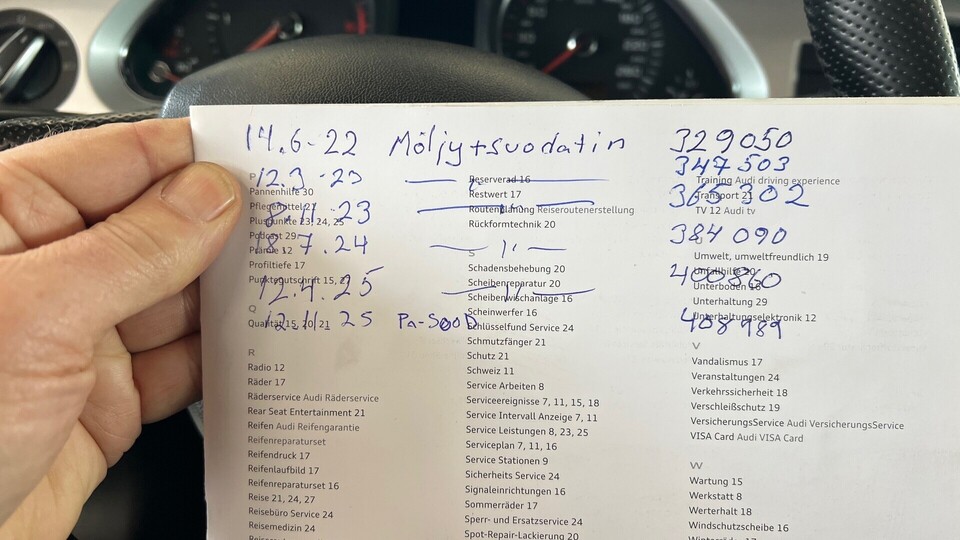 14.6-22 Möljy+suodatin 329050
12.3-23 —"— 347503
8.11.23 —"— 365302
18.7.24 —"— 384090
12.4.25 —"— 400860
12.11.25 408989
Pannenhilfe 30
Pflegemittel 21
Pluspunkte 23, 24, 25
Podcast 29
Prämie 12
Profiltiefe 17
Punktegutschrift 15, 27
Q
Qualität 15, 20, 21
R
Radio 12
Räder 17
Räderservice Audi Räderservice
Rear Seat Entertainment 21
Reifen Audi Reifengarantie
Reifenreparaturset
Reifendruck 17
Reifenlaufbild 17
Reifenreparaturset 16
Reise 21, 24, 27
Reisebüro Service 24
Reisemedizin 24
Reserverad 16
Restwert 17
Routenplanung Reiseroutenerstellung
Rückformtechnik 20
S
Schadensbehebung 20
Scheibenreparatur 20
Scheibenwischanlage 16
Scheinwerfer 16
Schlüsselfund Service 24
Schmutzfänger 21
Schutz 21
Schweiz 11
Service Arbeiten 8
Serviceereignisse 7, 11, 15, 18
Service Intervall Anzeige 7, 11
Service Leistungen 8, 23, 25
Serviceplan 7, 11, 16
Service Stationen 9
Sicherheits Service 24
Signaleinrichtungen 16
Sommerräder 17
Sperr- und Ersatzservice 24
Spot-Repair-Lackierung 20
Training Audi driving experience
Transport 21
TV 12 Audi tv
Umwelt, umweltfreundlich 19
Unfallhilfe 30
Unterboden 16
Unterhaltung 29
Unterhaltungselektronik 12
V
Vandalismus 17
Veranstaltungen 24
Verkehrssicherheit 18
Verschleißschutz 19
VersicherungsService Audi VersicherungsService
VISA Card Audi VISA Card
W
Wartung 15
Werkstatt 8
Werterhalt 18
Windschutzscheibe 16